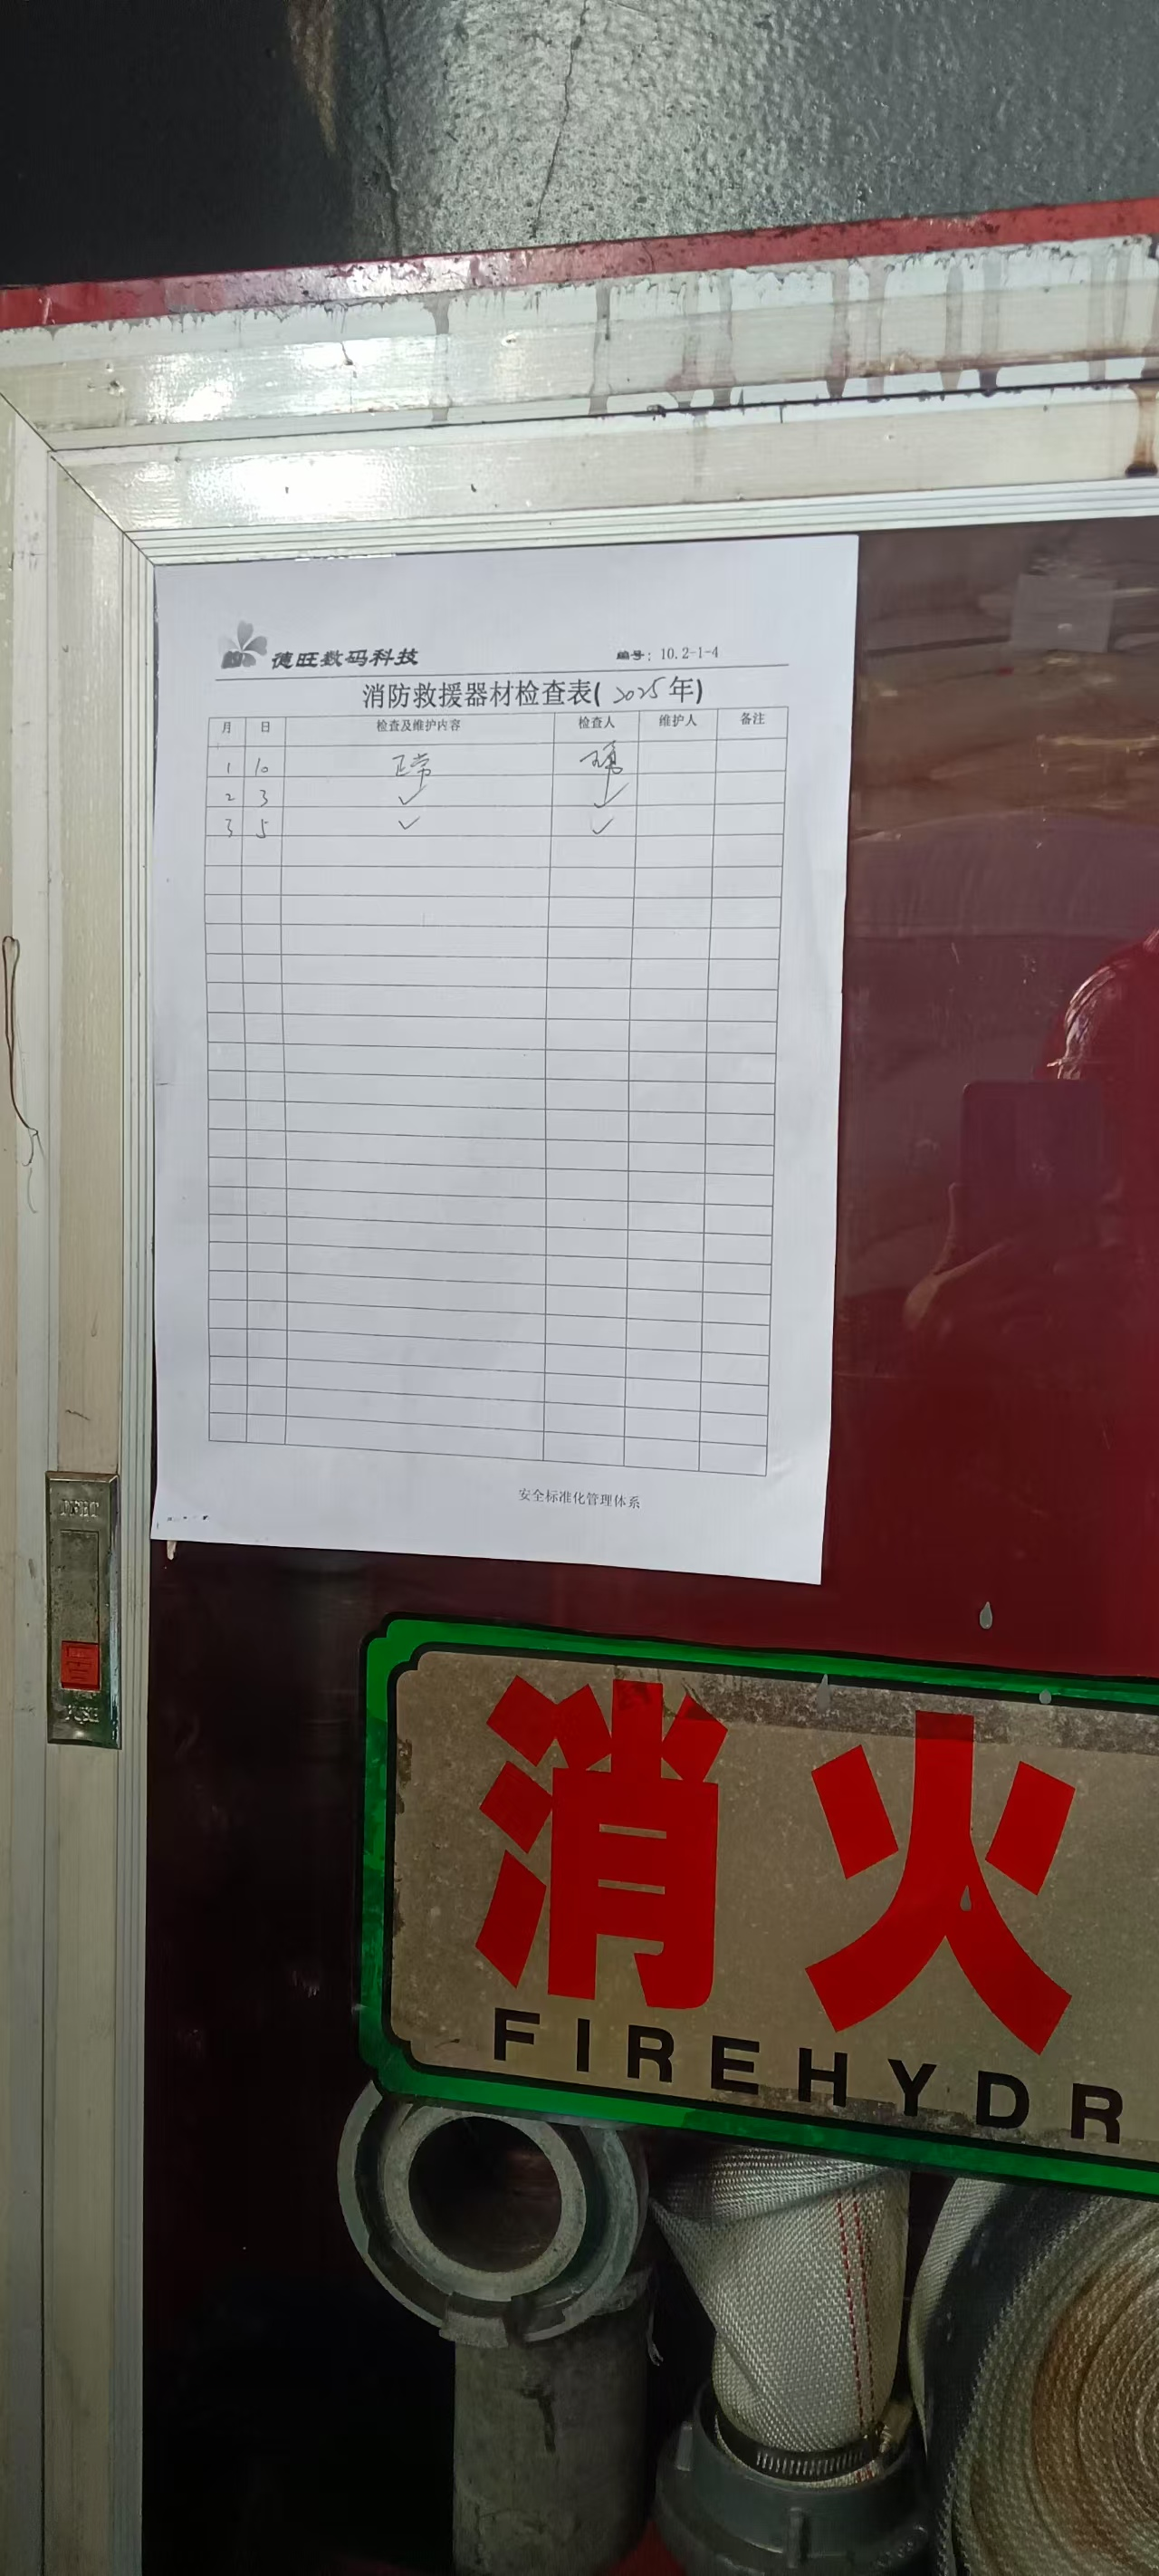 德旺数码科技 编号：10.2-1-4
消防救援器材检查表(2025年)
月 日 检查及维护内容 检查人 维护人 备注
1 10 正常
2 3 ✓ ✓
3 5 ✓ ✓
安全标准化管理体系
PUSH
消火
FIREHYDR